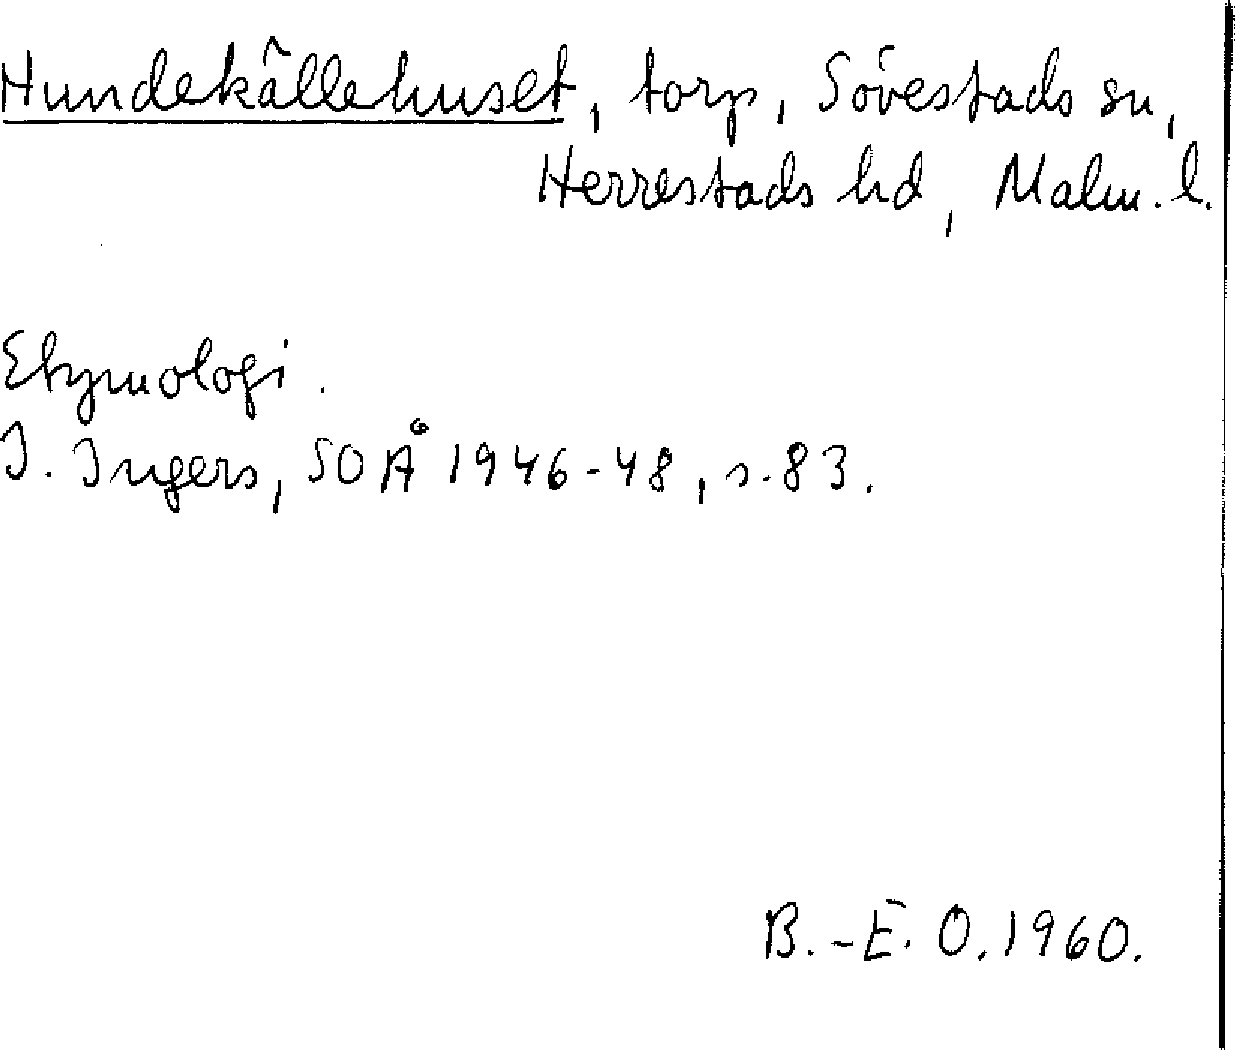 Hundekällehuset, torp, Sövestads sn,
Herrestads hd, Malm. l.
Etymologi.
I. Ingers, SOÅ 1946-48, s. 83.
B.-E. O. 1960.